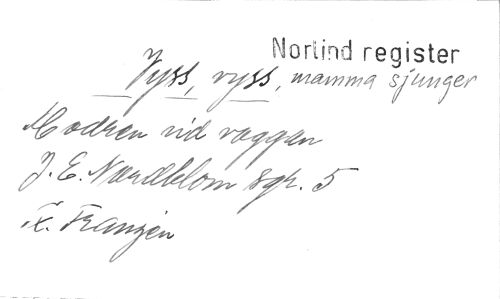 Norlind register
Vyss, vyss, mamma sjunger
Modren vid vaggan
J. E. Nordblom sgr. 5
F. Franzén